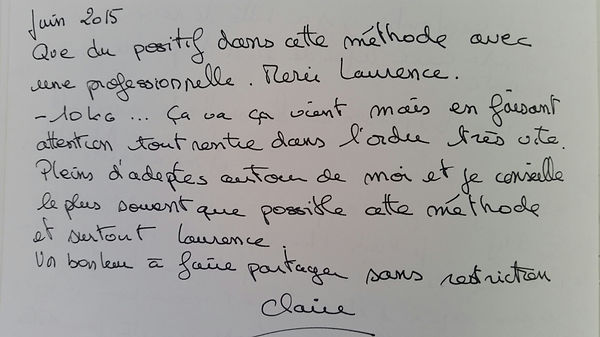 Juin 2015
Que du positif dans cette méthode avec
une professionnelle. Merci Laurence.
-10 KG ... Ça va ça vient mais en faisant
attention tout rentre dans l'ordre très vite.
Pleins d'adeptes autour de moi et je conseille
le plus souvent que possible cette méthode
et surtout Laurence.
Un bonheur à faire partager sans restriction
Claire